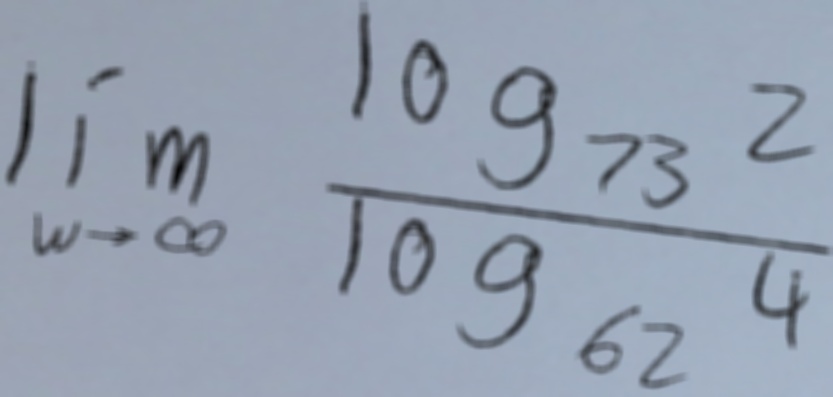 lim_{w→∞} \frac{log_{73} 2}{log_{62} 4}